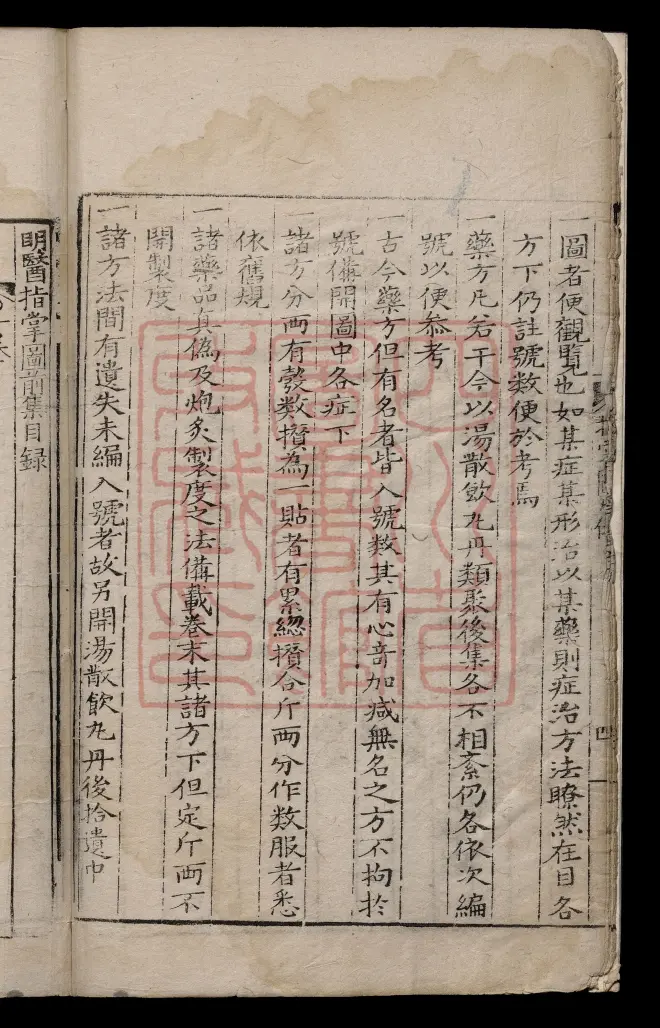 一圖者便觀覽也如某症某形治以某藥則症治方法瞭然在目各
方下仍註號数便於考焉
一藥方凡若干今以湯散飲丸丹類聚後集各不相紊仍各依次編
號以便叅考
一古今藥方但有名者皆入號数其有心竒加减無名之方不拘於
號俻開圖中各症下
一諸方分両有彀数攢為一貼者有累緫攢合斤両分作数服者悉
依舊規
一諸藥品真偽及炮炙製度之法俻載卷末其諸方下但定斤両不
開製度
一諸方法間有遺失未編入號者故另開湯散飲丸丹後拾遺中
明醫指掌圖前集目録